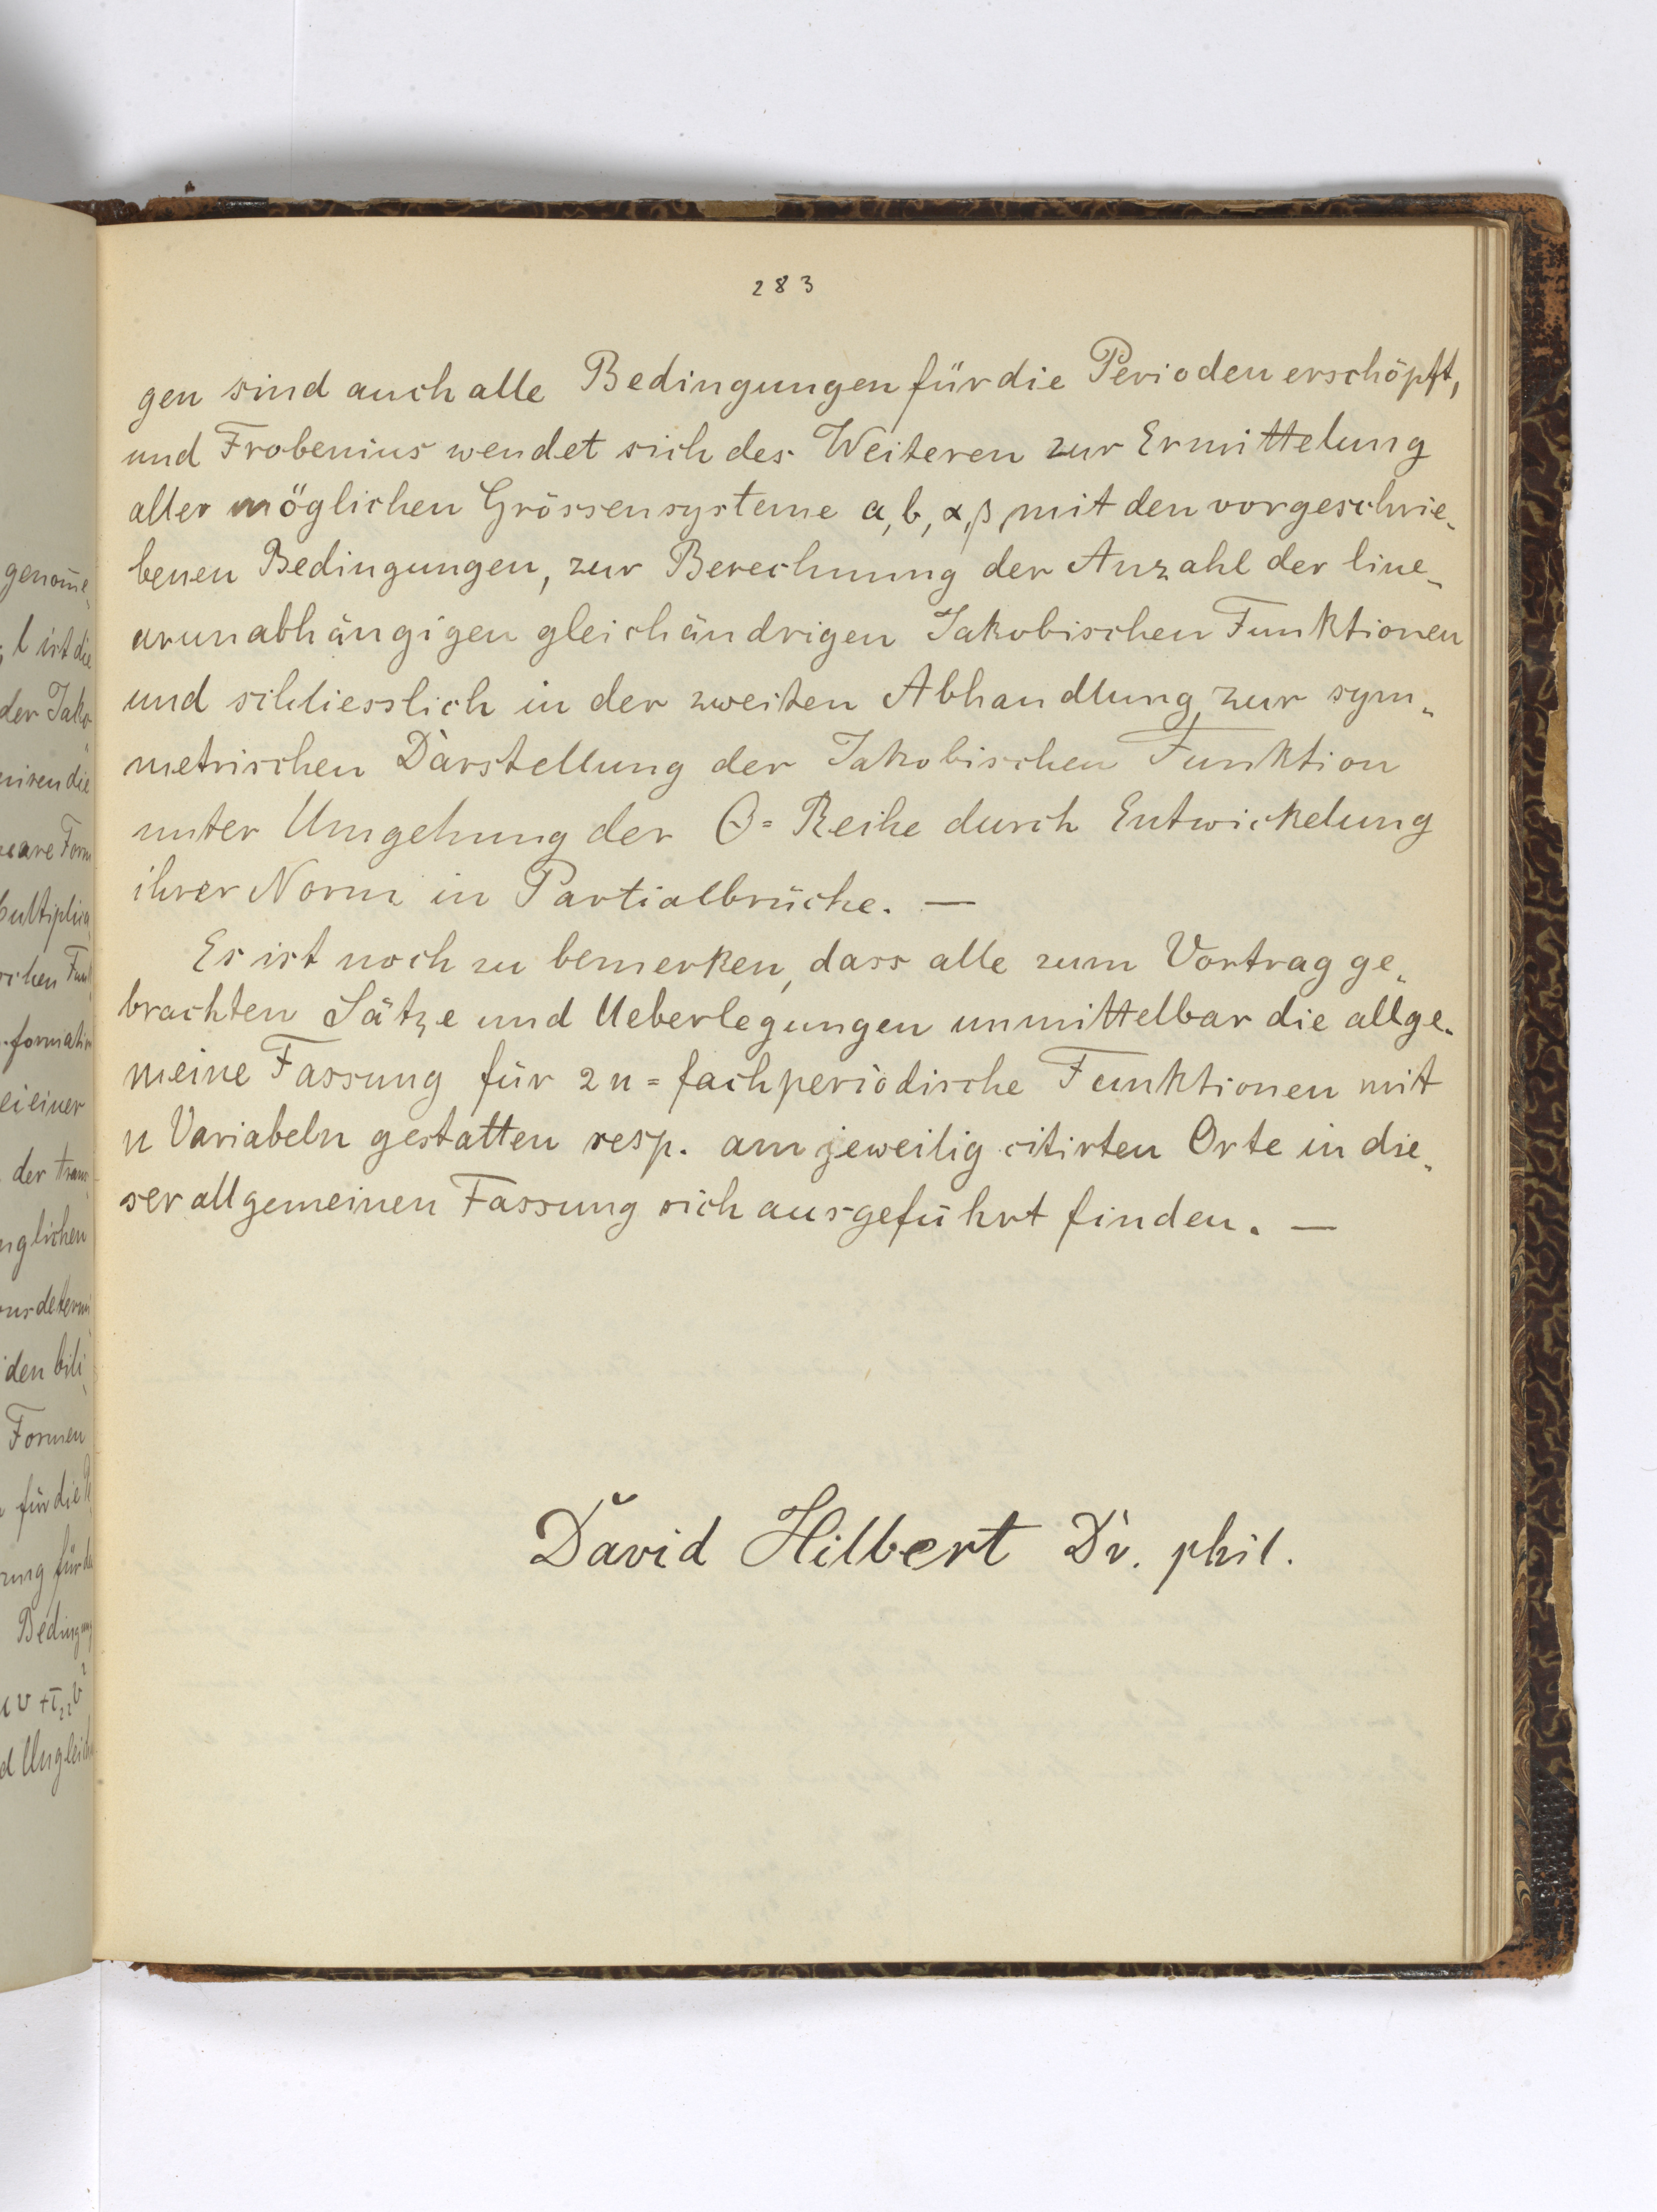 283
gen sind auch alle Bedingungen für die Perioden erschöpft,
und Frobenius wendet sich des Weiteren zur Ermittelung
aller möglichen Grössensysteme a, b, α, β, mit den vorgeschrie-
benen Bedingungen, zur Berechnung der Anzahl der line-
arunabhängigen gleichändrigen Jakobischen Funktionen
und schliesslich in der zweiten Abhandlung zur sym-
metrischen Darstellung der Jakobischen Funktion
unter Umgehung der Θ=Reihe durch Entwickelung
ihrer Norm in Partialbrüche. —
Es ist noch zu bemerken, dass alle zum Vortrag ge-
brachten Sätze und Ueberlegungen unmittelbar die allge-
meine Fassung für 2n=fachperiodische Funktionen mit
n Variabeln gestatten resp. am jeweilig citirten Orte in die-
ser allgemeinen Fassung sich ausgeführt finden. —
David Hilbert Dr. phil.
genom̄e-
l ist die
der Jako-
niren die
eare Form
ultiplica-
schen Fun
formatio
ei einer
der trans-
nglichen
nsdetermi
den bili-
Formen
für die
rung für d
Bedingung
v + τ₂₂v²
d Ungleich